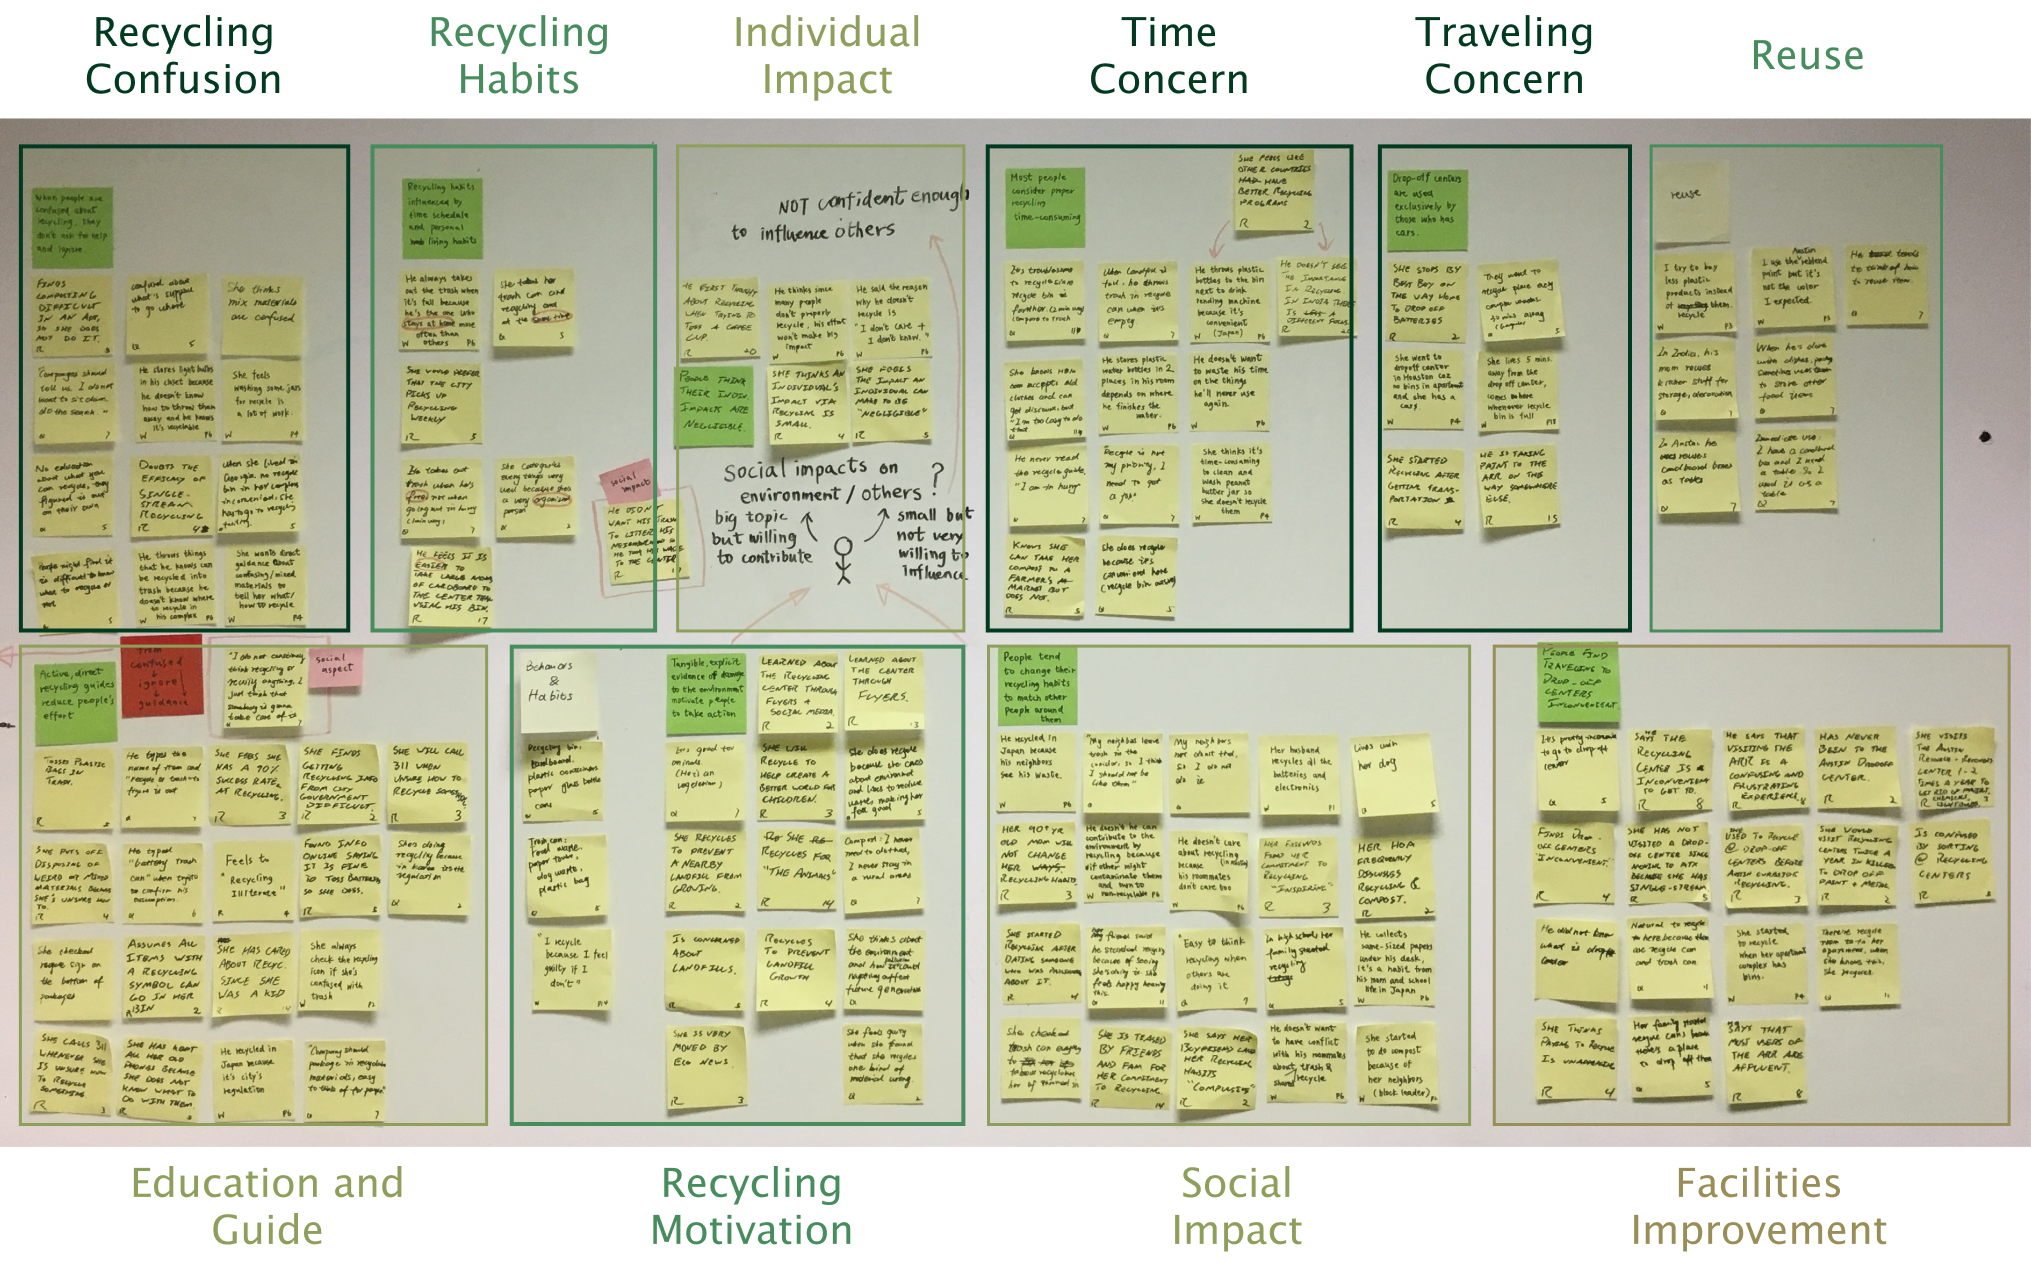 Recycling
Confusion
Recycling
Habits
Individual
Impact
Time
Concern
Traveling
Concern
Reuse
When people are
confused about
recycling, they
don't ask for help
and ignore.
FINDS
COMPOSTING
DIFFICULT
IN AN APT,
SO SHE DOES
NOT DO IT.
R
confused about
what's suppose
to go where
She thinks
mix materials
are confused
Companies should
tell us. I do not
want to sit down
do the search."
He stores light bulbs
in his closet because
he doesn't know
how to throw them
away and he knows
it's recyclable
W P6
She feels
washing some jars
for recycle is
a lot of work.
W P4
No education
about what you
can recycle, they
figured it out
on their own
DOUBTS THE
EFFICACY OF
SINGLE-
STREAM
RECYCLING
R
when she lived in
Georgia, no recycle
bin in her complex
He throws things
that he knows can
be recycled into
trash because he
doesn't know where
to recycle in
his complex P6
She wants direct
guidance about
confusing/mixed
materials to
tell her what/
how to recycle
W P4
Recycling habits
influenced by
time schedule
and personal
living habits
He always takes
out the trash when
it's full because
he's the one who
stays at home more
often than
others
W P6
She takes her
trash can and
recycling out
at the same time
5
SHE WOULD PREFER
THAT THE CITY
PICKS UP
RECYCLING
WEEKLY
R 3
She categorizes
every thing very
well because she's
a very organized
person
2
HE FEELS IT IS
EASIER TO
TAKE LARGE
OF CARDBOARD TO
THE CENTER THAN
USING HIS BIN.
R 17
social
impact
HE DIDN'T
WANT HIS TRASH
TO LITTER HIS
TO THE CENTER
R
NOT confident enough
to influence others
HE FIRST THOUGHT
ABOUT RECYCLING
WHEN TRYING TO
TOSS A COFFEE
CUP.
R 20
He thinks since
many people
don't properly
recycle, his effort
won't make big
impact
W P6
He said the reason
why he doesn't
recycle is
"I don't care +
I don't know."
W P6
PEOPLE THINK
THEIR INDIV.
IMPACT ARE
NEGLIGIBLE.
SHE THINKS AN
INDIVIDUAL'S
IMPACT VIA
RECYCLING IS
SMALL.
R 4
SHE FEELS
THE IMPACT AN
INDIVIDUAL CAN
MAKE TO BE
"NEGLIGIBLE"
R 5
social impacts on
environment / others ?
big topic
but willing
to contribute
small but
not very
willing to
influence
Most people
consider proper
recycling
time-consuming
SHE FEELS LIKE
OTHER COUNTRIES
HAD HAVE
BETTER RECYCLING
PROGRAMS
R 2
It's troublesome
to recycle since
recycle bin is
further.
When landfill is
full, he throws
trash in recycle
can when it's
empty
He throws plastic
bottles to the bin
next to drink
vending machine
because it's
convenient
W (Japan) P6
HE DOESN'T SEE
THE IMPORTANCE
IN RECYCLING
IN INDIA THERE
DIFFERENT FOCUS.
R 20
She knows H&M
accepts old
clothes and can
get discount, but
"I'm too lazy to do
that"
He stores plastic
water bottles in 2
places in his room
depends on where
he finishes the
water.
W P6
He doesn't want
to waste his time
on the things
he'll never use
again.
W P6
He never read
the recycle guide.
"I am in hurry"
7
Recycle is not
my priority, I
need to get
a job"
7
She thinks it's
time-consuming
to clean and
wash peanut
butter jar so
she doesn't recycle
them
W P4
KNOWS SHE
CAN TAKE HER
COMPOST TO A
FARMER'S
MARKET BUT
DOES NOT.
R 5
She does recycle
because it's
convenient here
(recycle bin nearby)
5
Drop-off centers
are used
exclusively by
those who has
cars.
SHE STOPS BY
BEST BUY ON
THE WAY HOME
TO DROP OFF
BATTERIES
R 2
They went to
recycle place only
5
She went to
dropoff center
in Houston coz
no bins in apartment
and she has a
car.
W P4
She lives 5 mins.
away from the
drop off center,
comes there
whenever recycle
bin is full
W P13
SHE STARTED
RECYCLING AFTER
GETTING TRANS-
PORTATION
R 4
HE IS TAKING
PAINT TO THE
ARR ON THE
WAY SOMEWHERE
ELSE.
R 15
reuse
I try to buy
less plastic
products instead
of recycle them.
W P3
Austin
I use the reblend
paint but it's
not the color
I expected.
W P3
He tends
to reuse item.
7
In India, his
mom reuses
kitchen stuff for
storage, decoration
7
When he's done
with dishes,
to store other
food items
7
In Austin he
reuses
cardboard boxes
as table
7
Immediate use:
I have a cardboard
box and I need
a table so I
used it as a
table
7
Active, direct
recycling guides
reduce people's
effort
from
confused
ignore
guidance
"I do not consciously
think recycling or
reusing anything. I
just think that
somebody is gonna
take care of it
social
aspect
TOSSES PLASTIC
BAGS IN
TRASH.
R
He types the
name of item and
"recycle or trash" to
figure it out
SHE FEELS SHE
HAS A 90%
SUCCESS RATE
AT RECYCLING.
R 3
SHE FINDS
GETTING
RECYCLING INFO
FROM CITY
GOVERNMENT
DIFFICULT.
R 2
SHE WILL CALL
311 WHEN
UNSURE HOW TO
RECYCLE SOMETHING
R 3
SHE PUTS OFF
DISPOSAL OF
WEIRD OR MIXED
MATERIALS BECAUSE
SHE'S UNSURE HOW
TO.
R 4
He typed
"battery trash
can" when tries to
to confirm his
assumption.
6
Feels to
"Recycling
Illiterate"
R 4
FOUND INFO
ONLINE SAYING
IT IS FINE
TO TOSS BATTERIES
SO SHE DOES.
R
She's doing
recycling because
in Korea it's the
regulation
2
She checked
recycle sign on
the bottom of
packages
ASSUMES ALL
ITEMS WITH
A RECYCLING
SYMBOL CAN
GO IN HER
BIN
R 2
SHE HAS CARED
ABOUT RECYC.
SINCE SHE
WAS A KID
R 14
She always
check the recycling
icon if she's
confused with
trash
W P2
SHE CALLS 311
WHENEVER SHE
IS UNSURE HOW
TO RECYCLE
SOMETHING
R 3
SHE HAS KEPT
ALL HER OLD
PHONES BECAUSE
SHE DOES NOT
KNOW WHAT TO
DO WITH THEM.
R
He recycled in
Japan because
it's city's
regulation
W P6
"Company should
package in recyclable
materials, easy
to think of for people"
7
Behaviors
&
Habits
Recycling bin:
cardboard,
plastic containers
paper glass bottle
cans
Trash can:
food waste,
paper towel,
dog waste,
plastic bag
"I recycle
because I feel
guilty if I
don't"
W P14
Tangible, explicit
evidence of damage
to the environment
motivate people
to take action
LEARNED ABOUT
THE RECYCLING
CENTER THROUGH
FLYERS +
SOCIAL MEDIA.
R 2
LEARNED ABOUT
THE CENTER
THROUGH
FLYERS.
R 3
It's good for
animals
(He's) an
vegetarian)
7
SHE WILL
RECYCLE TO
HELP CREATE A
BETTER WORLD FOR
CHILDREN.
R 3
She does recycle
because she cares
about environment
and likes to reduce
waste, making her
feel good
SHE RECYCLES
TO PREVENT
A NEARBY
LANDFILL FROM
GROWING.
R 2
SHE
RECYCLES FOR
"THE ANIMALS"
R 14
Compost: I never
need to do that,
I never stay in
a rural areas
7
IS CONCERNED
ABOUT
LANDFILLS.
R 5
RECYCLES
TO PREVENT
LANDFILL
GROWTH
R 4
She thinks about
the environment
and how it could
negatively affect
future generation
SHE IS VERY
MOVED BY
ECO NEWS.
R 3
She feels guilty
when she found
that she recycles
one kind of
material wrong.
2
People tend
to change their
recycling habits
to match other
people around
them
He recycled in
Japan because
his neighbors
see his waste.
W P6
"My neighbors leave
trash in the
corridor, so I think
I should not be
like them"
My neighbors
not doing that,
so I do not
do it
Her husband
recycles all the
batteries and
electronics
W P1
Lives with
her dog
5
HER 90+ YR
OLD MOM WILL
NOT CHANGE
HER WAYS
RECYCLING HABITS.
R 3
He doesn't he can
contribute to the
environment by
recycling because
other might
contaminate them
and turn to
non-recyclable P6
He doesn't care
about recycling
because
his roommates
don't care too
W P6
HER FRIENDS
FIND HER
COMMITMENT TO
RECYCLING
"INSPIRING"
R 3
HER HOA
FREQUENTLY
DISCUSSES
RECYCLING &
COMPOST.
R 2
SHE STARTED
RECYCLING AFTER
DATING SOMEONE
WHO WAS PASSIONATE
ABOUT IT.
R 4
My friend said
he started recycling
because of seeing
she's doing it. she
feels happy hearing
this.
11
"Easy to think
recycling when
others are
doing it
7
in high school her
family started
recycling
5
He collects
same-sized papers
under his desk,
it's a habit from
his mom and school
life in Japan
W P6
SHE IS TEASED
BY FRIENDS
AND FAM FOR
HER COMMITMENT
TO RECYCLING.
R 14
SHE SAYS HER
BOYFRIEND CALLS
HER RECYCLING
HABITS
"COMPULSIVE"
R 2
He doesn't want
to have conflict
with his roommates
about trash &
shared recycle
W P6
She started
to do compost
because of
her neighbors
(block leader)
W P2
PEOPLE FIND
TRAVELING TO
DROP-OFF
CENTERS
INCONVENIENT
It's pretty inconvenient
to go to drop off
center
5
SAYS THE
RECYCLING
CENTER IS
INCONVENIENT
TO GET TO.
R 8
HE SAYS THAT
VISITING THE
ARR IS A
CONFUSING AND
FRUSTRATING
EXPERIENCE.
R 8
HAS NEVER
BEEN TO THE
AUSTIN DROPOFF
CENTER.
R 2
SHE VISITS
THE AUSTIN
RESOURCE RECOVERY
CENTER 1-2
TIMES A YEAR TO
GET RID OF PAINTS,
CHEMICALS,
R
FINDS DROP-
OFF CENTERS
"INCONVENIENT."
R 4
SHE HAS NOT
VISITED A DROP-
OFF CENTER SINCE
MOVING TO ATX
BECAUSE SHE HAS
SINGLE-STREAM
R 5
SHE
USED TO RECYCLE
@ DROP-OFF
CENTERS BEFORE
AUSTIN CURBSIDE
RECYCLING.
R 3
SHE WOULD
VISIT RECYCLING
CENTERS TWICE
A YEAR IN KILLEEN
TO DROP OFF
PAINT + METAL
R 2
IS CONFUSED
BY SORTING
@ RECYCLING
CENTERS
R 8
He did not know
what is drop off
center
Natural to recycle
to here because there
are recycle can
and trash can
She started
to recycle
when her apartment
complex has
bins.
W P4
There's recycle
room in her
apartment, when
she knows this,
she recycles
11
SHE THINKS
PAYING TO RECYCLE
IS UNAPPEALING
R 4
Her family started
recycle cans because
there's a place
to drop off them
5
SAYS THAT
MOST USERS OF
THE ARR ARE
AFFLUENT.
R 8
Education and
Guide
Recycling
Motivation
Social
Impact
Facilities
Improvement